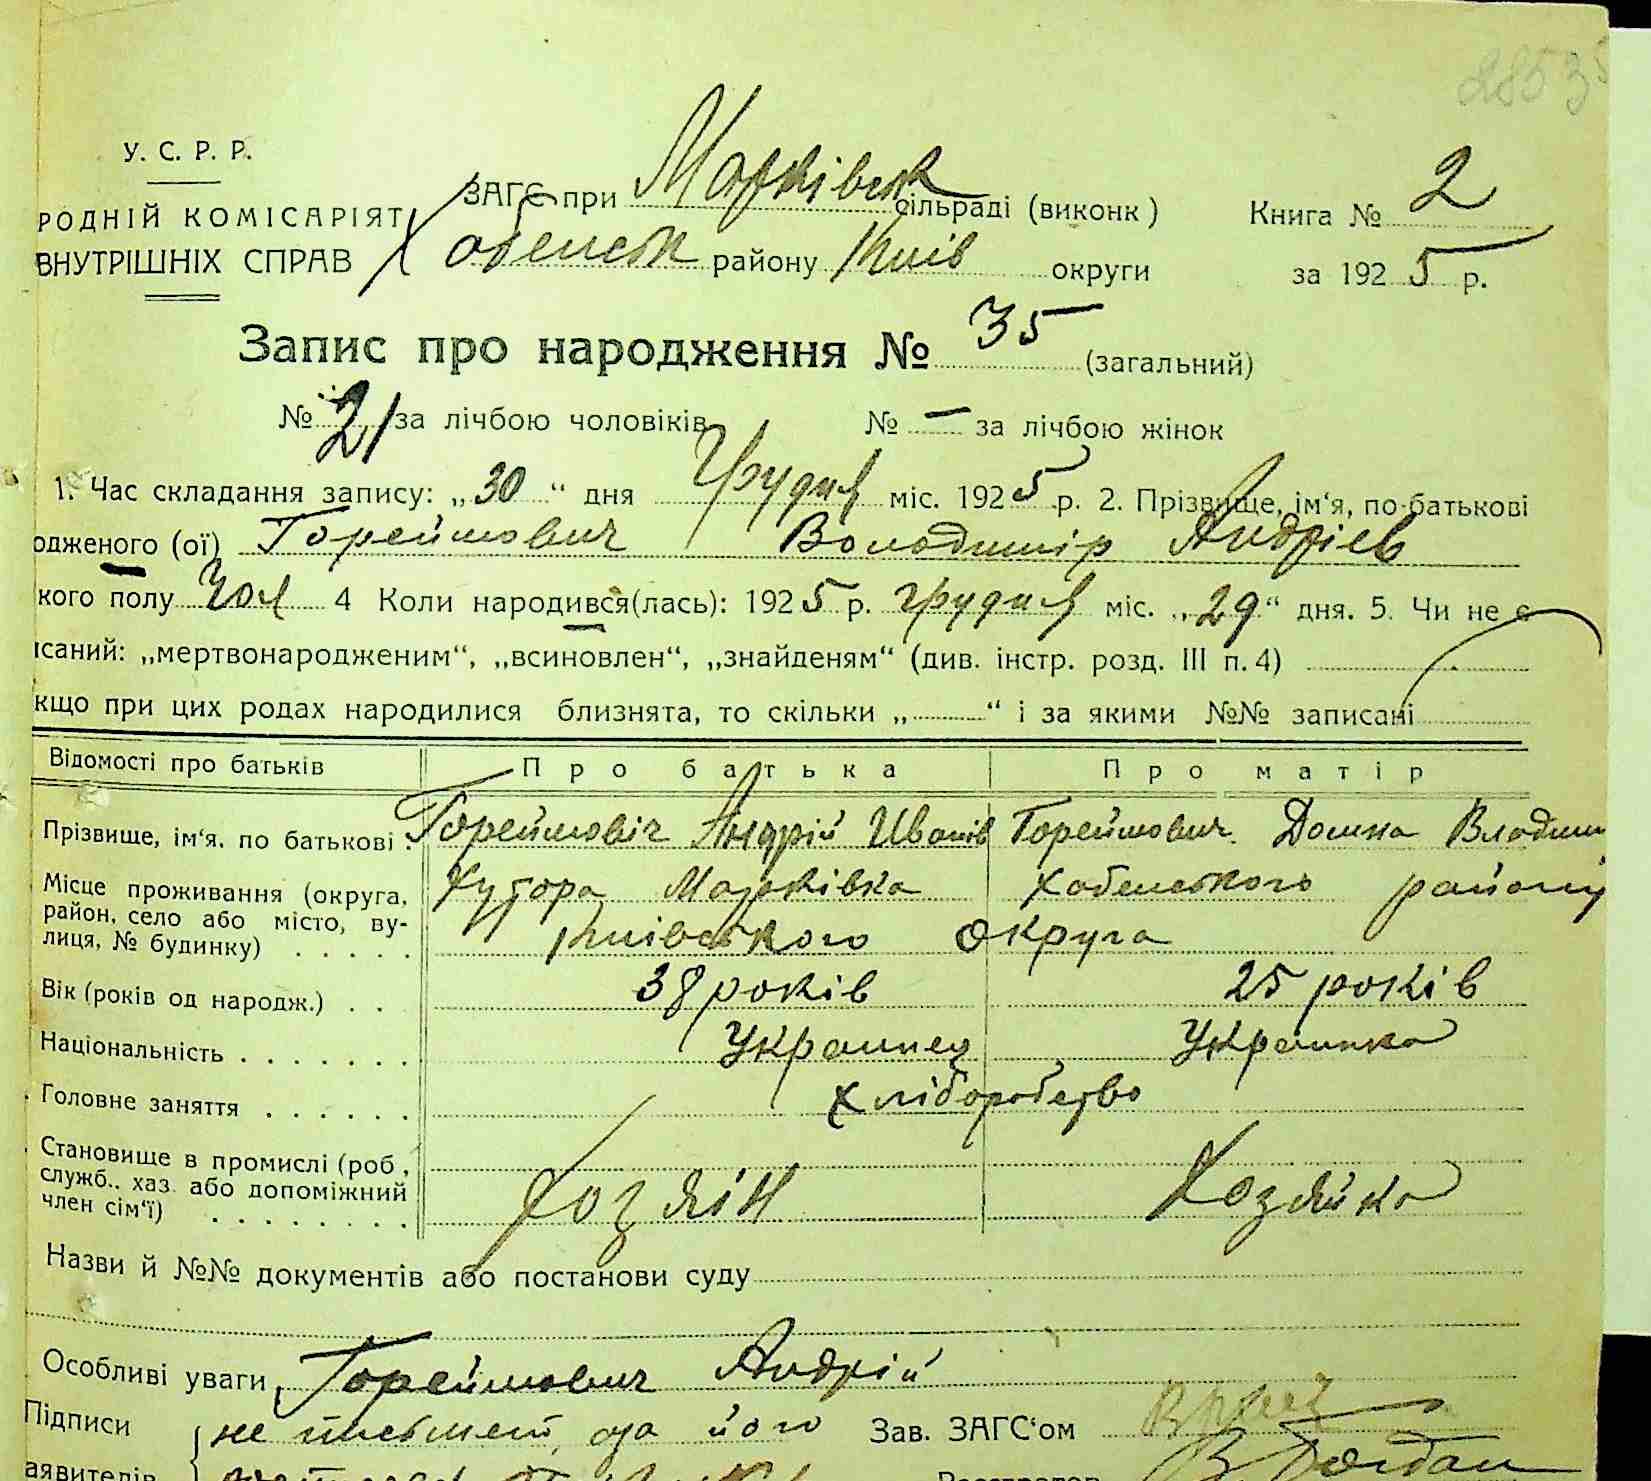 2853
У. С. Р. Р.
РОДНІЙ КОМІСАРІЯТ
ВНУТРІШНІХ СПРАВ
ЗАГС при Марківськ сільраді (виконк)
Хабенськ району Київ округи
Книга № 2
за 1925 р.
Запис про народження № 35 (загальний)
№ 21 за лічбою чоловіків № – за лічбою жінок
1. Час складання запису: „30“ дня Грудня міс. 1925 р. 2. Прізвище, ім‘я, по-батькові
одженого (ої) Гореймович Володимір Андріев
кого полу чол 4 Коли народився(лась): 1925 р. грудня міс. „29“ дня. 5. Чи не є
ісаний: „мертвонародженим“, „всиновлен“, „знайденям“ (див. інстр. розд. III п. 4)
кщо при цих родах народилися близнята, то скільки „ “ і за якими №№ записані
Відомості про батьків Про батька Про матір
Прізвище, ім‘я, по батькові . Гореймовіч Андрій Иванів Гореймович Домна Владим
Місце проживання (округа,
район, село або місто, ву-
лиця, № будинку) . . . . .
Хутора Марківка Хабенського району
Київського Округа
Вік (років од народж.) . . 38 років 25 років
Національність . . . . . . . Украинец Украинка
Головне заняття . . . . . . хліборобство
Становище в промислі (роб ,
служб.. хаз. або допоміжний
член сім‘ї) . . . . . . . .
Хозяін Хозяйка
Назви й №№ документів або постанови суду
Особливі уваги Гореймович Андрій
Підписи
не писмен, за його Зав. ЗАГС‘ом
аявителів